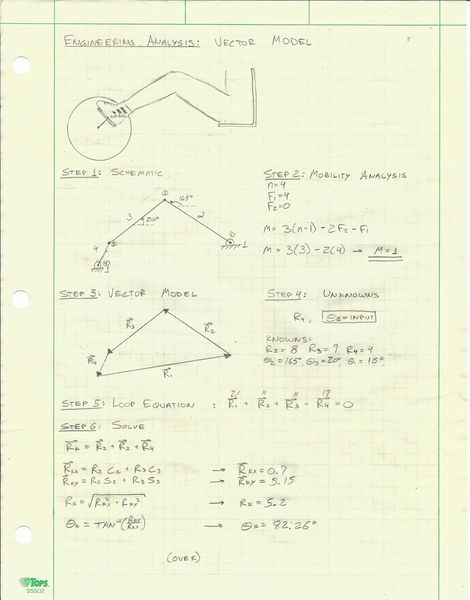 ENGINEERING ANALYSIS: VECTOR MODEL
STEP 1: SCHEMATIC
STEP 2: MOBILITY ANALYSIS
n=4
F₁=4
F₂=0
M= 3(n-1) - 2F₂ - F₁
M= 3(3) - 2(4) → M=1
165°
3
20°
2
4
1
STEP 3: VECTOR MODEL
R₃
R₂
R₄
R₁
STEP 4: UNKNOWNS
R₄, θ₂=INPUT
KNOWNS:
R₂= 8 R₃= 9 R₄= 4
θ₂=165° θ₃=20° θ₁= 13°
STEP 5: LOOP EQUATION : R₁ + R₂ + R₃ + R₄ = 0
STEP 6: SOLVE
R_K = R₂ + R₃ + R₄
R_KX = R₂ C₂ + R₃ C₃ → R_KX = 0.7
R_KY = R₂ S₂ + R₃ S₃ → R_KY = 5.15
R_K = √R_KX² + R_KY² → R_K = 5.2
θ_K = TAN⁻¹(R_KY/R_KX) → θ_K = 82.26°
(OVER)
TOPS
35502